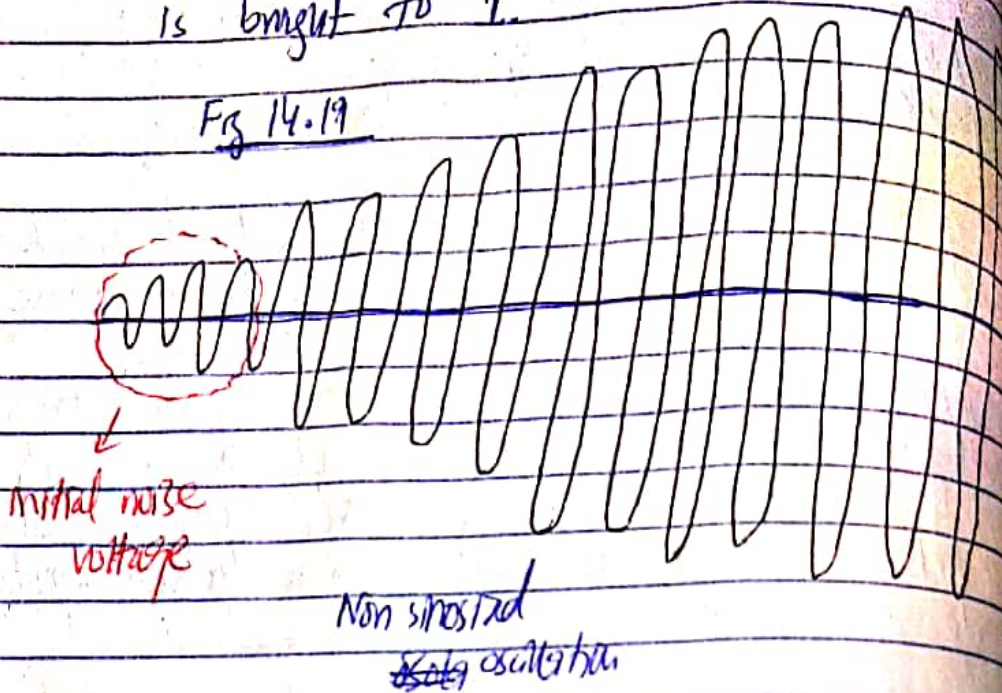 is brought to 1.
Fig 14.19
initial noise
voltage
Non sinosiod
oscillation